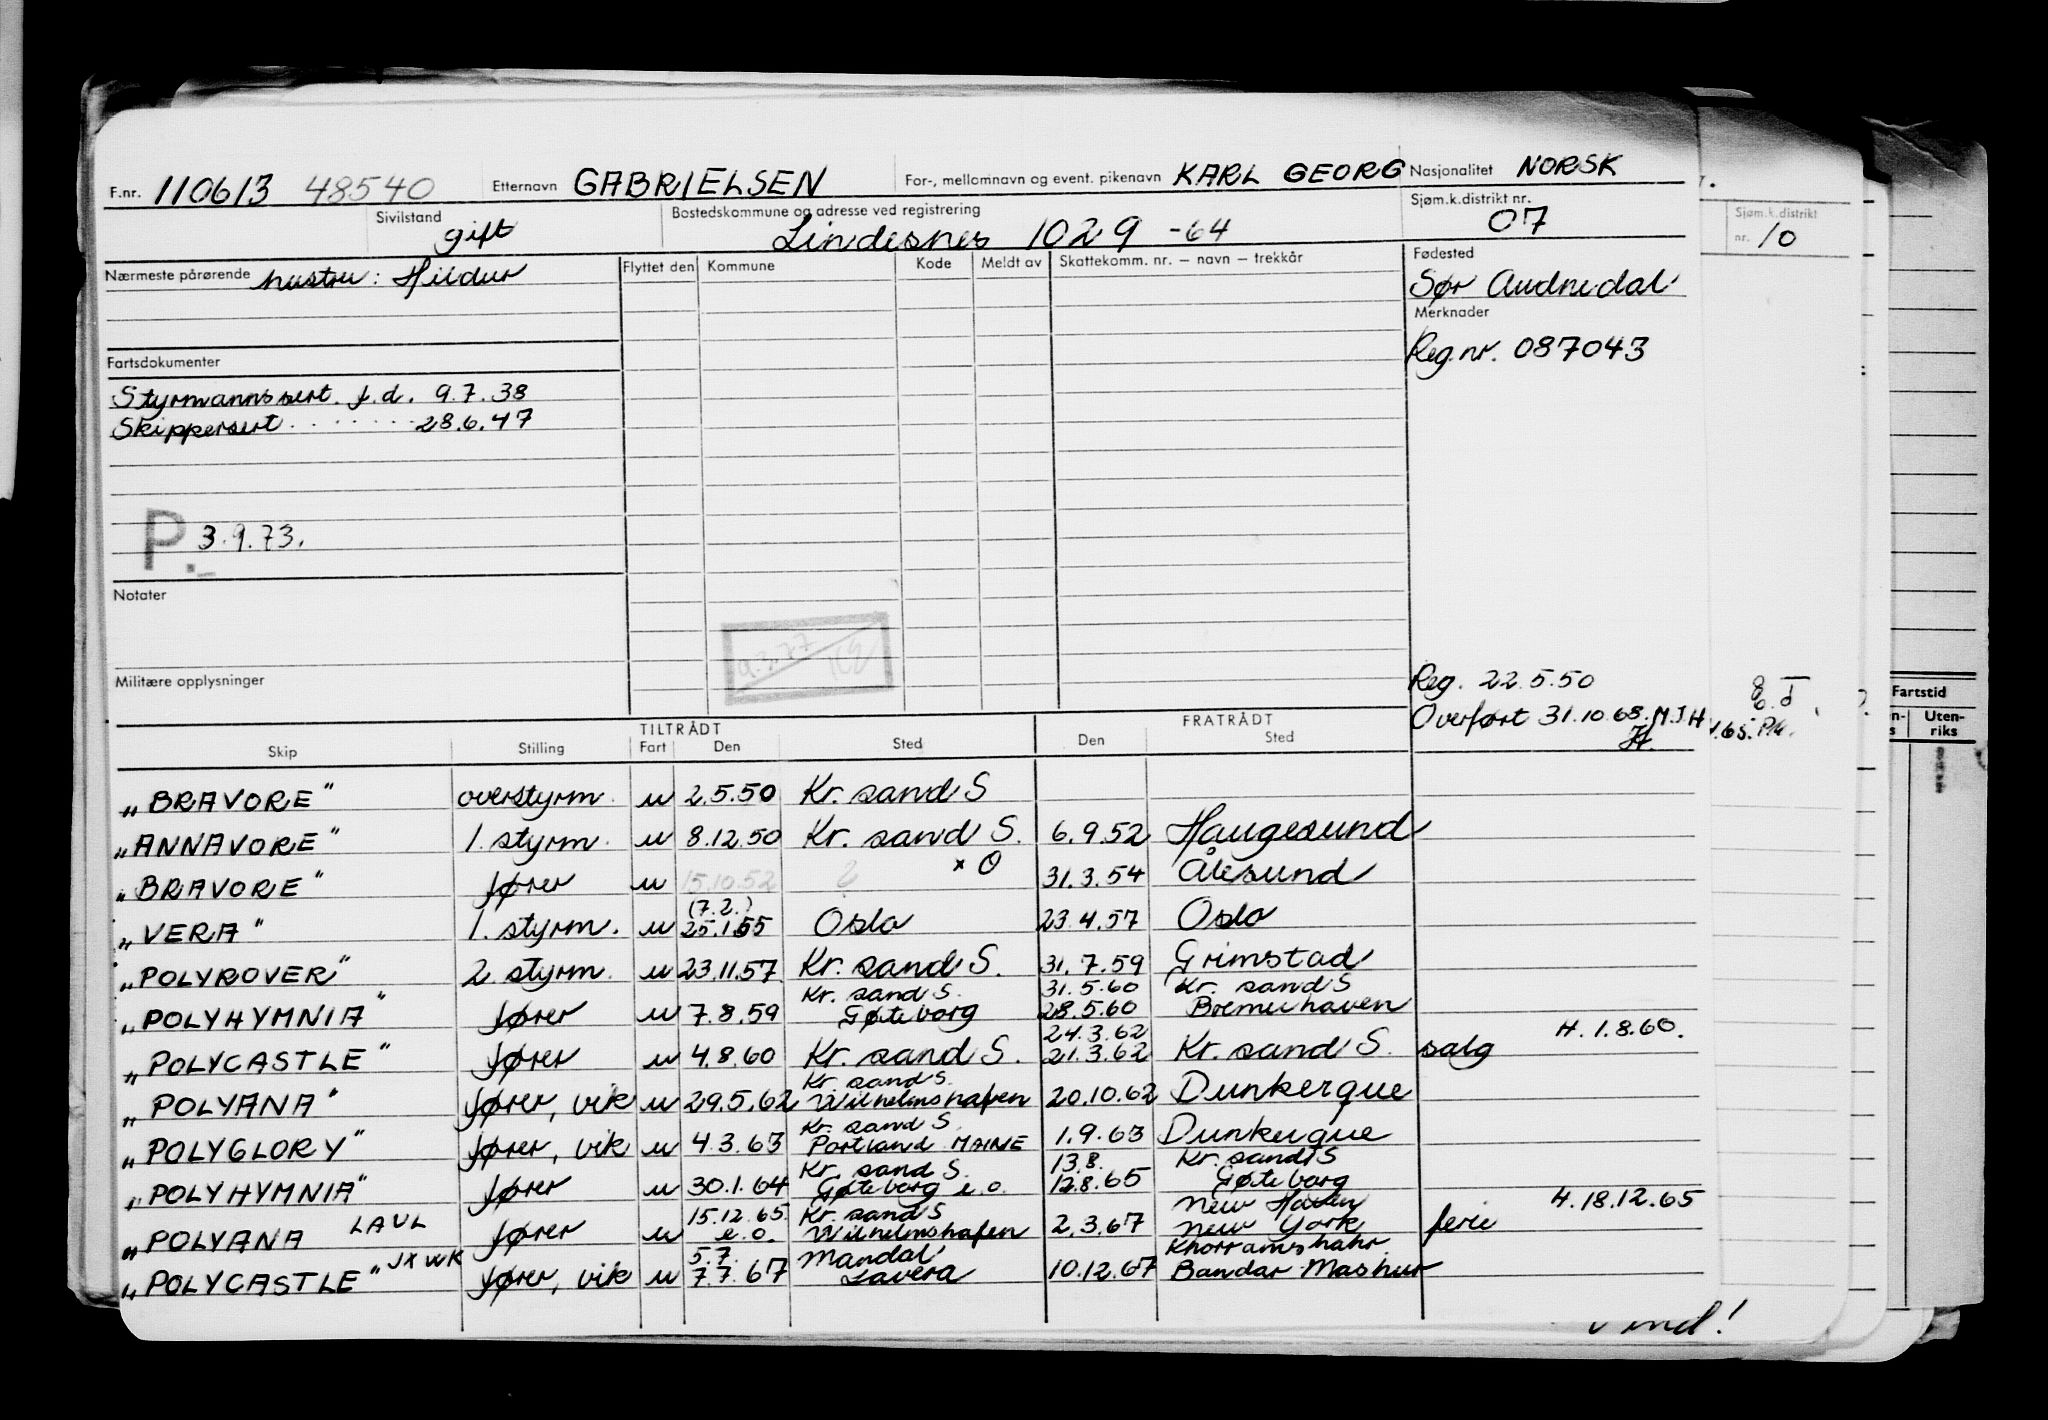 F.nr. 110613 48540 Etternavn GABRIELSEN For-, mellomnavn og event. pikenavn KARL GEORG Nasjonalitet NORSK
Sivilstand gift Bostedskommune og adresse ved registrering Lindesnes 1029 -64 Sjøm.k.distrikt nr. 07
Sjøm.k.distrikt nr. 10
Nærmeste pårørende hustru: Hildur Flyttet den Kommune Kode Meldt av Skattekomm. nr. – navn – trekkår Fødested
Sør Audnedal
Merknader
Reg.nr. 087043
Fartsdokumenter
Styrmannssert. f.d. 9.7.38
Skippersert. . . . . . . . 28.6.47
P. 3.9.73.
Notater
Militære opplysninger
Reg. 22.5.50
Overført 31.10.68. M.J.H
Fartstid
Uten-
riks
TILTRÅDT FRATRÅDT
Skip Stilling Fart Den Sted Den Sted
„BRAVORE" overstyrm. u 2.5.50 Kr. sand S
„ANNAVORE" 1. styrm. u 8.12.50 Kr. sand S. 6.9.52 Haugesund
„BRAVORE" fører u 15.10.52 x O 31.3.54 Ålesund
(7.2.)
„VERA" 1. styrm. u 25.1.55 Oslo 23.4.57 Oslo
„POLYROVER" 2. styrm. u 23.11.57 Kr. sand S. 31.7.59 Grimstad
Kr. sand S. 31.5.60 Kr. sand S
„POLYHYMNIA" fører u 7.8.59 Gøteborg 28.5.60 Bremerhaven
24.3.62 H. 1.8.60.
„POLYCASTLE" fører u 4.8.60 Kr. sand S. 21.3.62 Kr. sand S. salg
Kr. sand S.
„POLYANA" fører, vik u 29.5.62 Wilhelmshafen 20.10.62 Dunkerque
Kr. sand S.
„POLYGLORY" fører, vik u 4.3.63 Portland MAINE 1.9.63 Dunkerque
Kr. sand S. 13.8. Kr. sand S
„POLYHYMNIA" fører u 30.1.64 Gøteborg e.o. 12.8.65 Gøteborg
15.12.65. Kr. sand S New Haven H. 18.12.65
„POLYANA LAUL fører u e.o. Wilhelmshafen 2.3.67 New York ferie
JXWK 5.7. Mandal Khorramshahr
„POLYCASTLE" fører, vik u 7.7.67 Lavera 10.12.67 Bandar Mashur
vend!